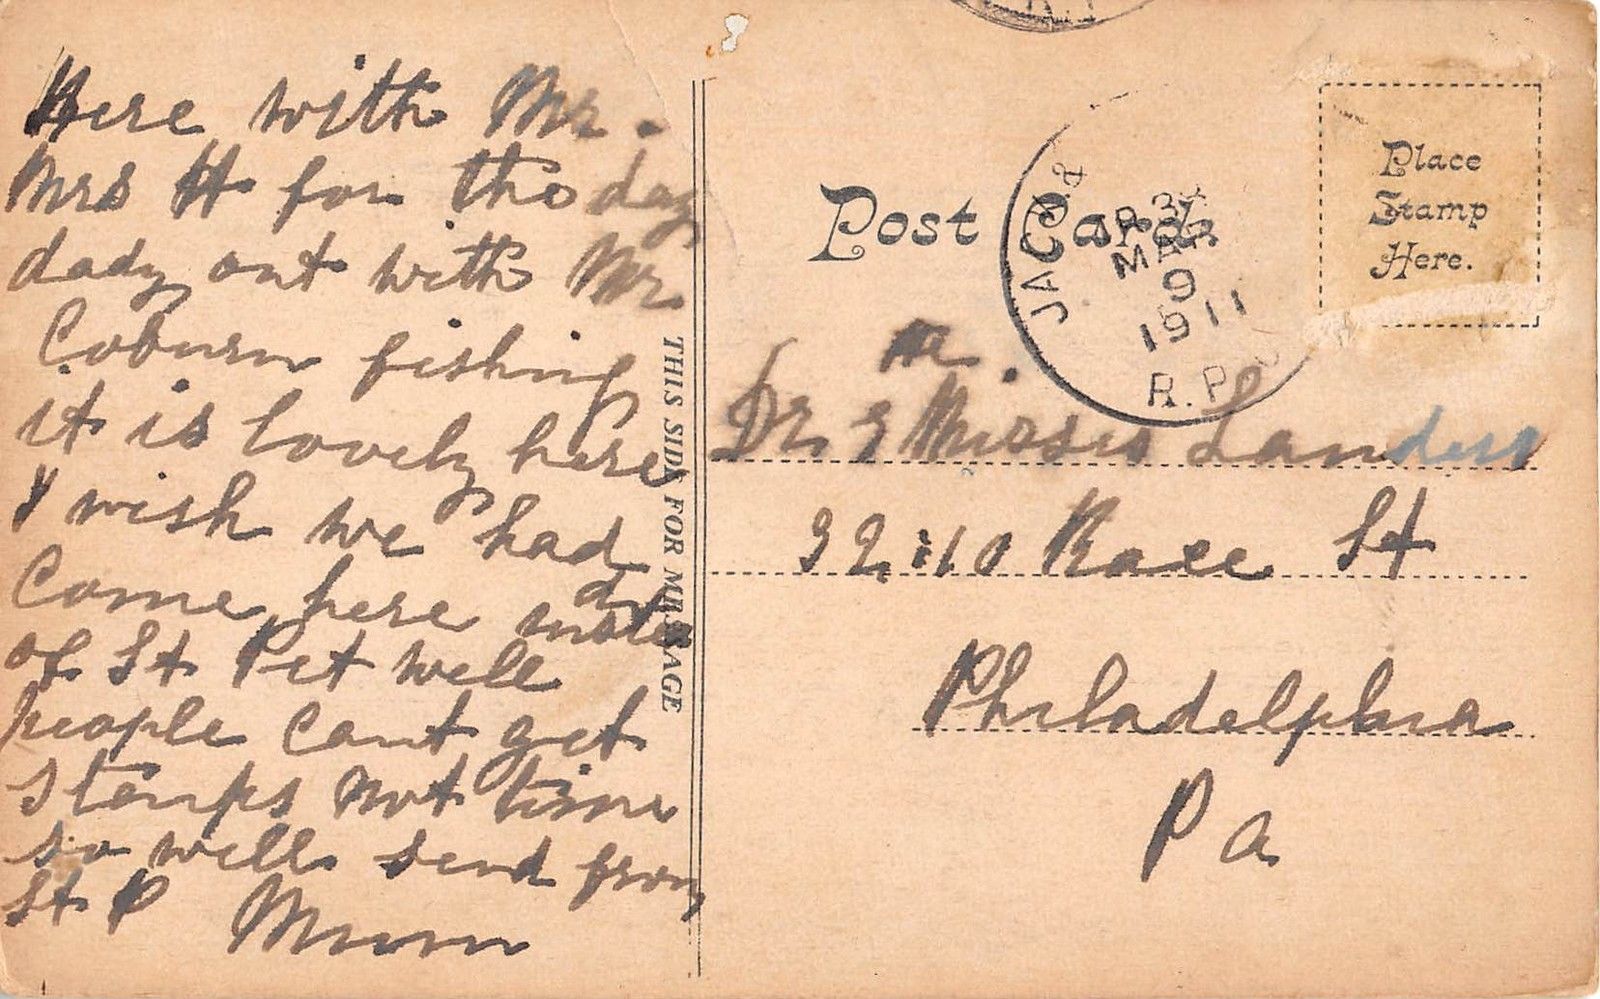 Here with Mr.
Mrs H for tho day
dady out with Mr
Coburn fishing
it is lovely here
I wish we had
Come here instead
of St Pet well
people cant get
Stamps not time
so will send from
St P Mum
THIS SIDE FOR MESSAGE
Post Card
JACK. &
MAR
9
1911
R.P.O
Place
Stamp
Here.
Dr & Misses Landers
Race St
Philadelphia
Pa